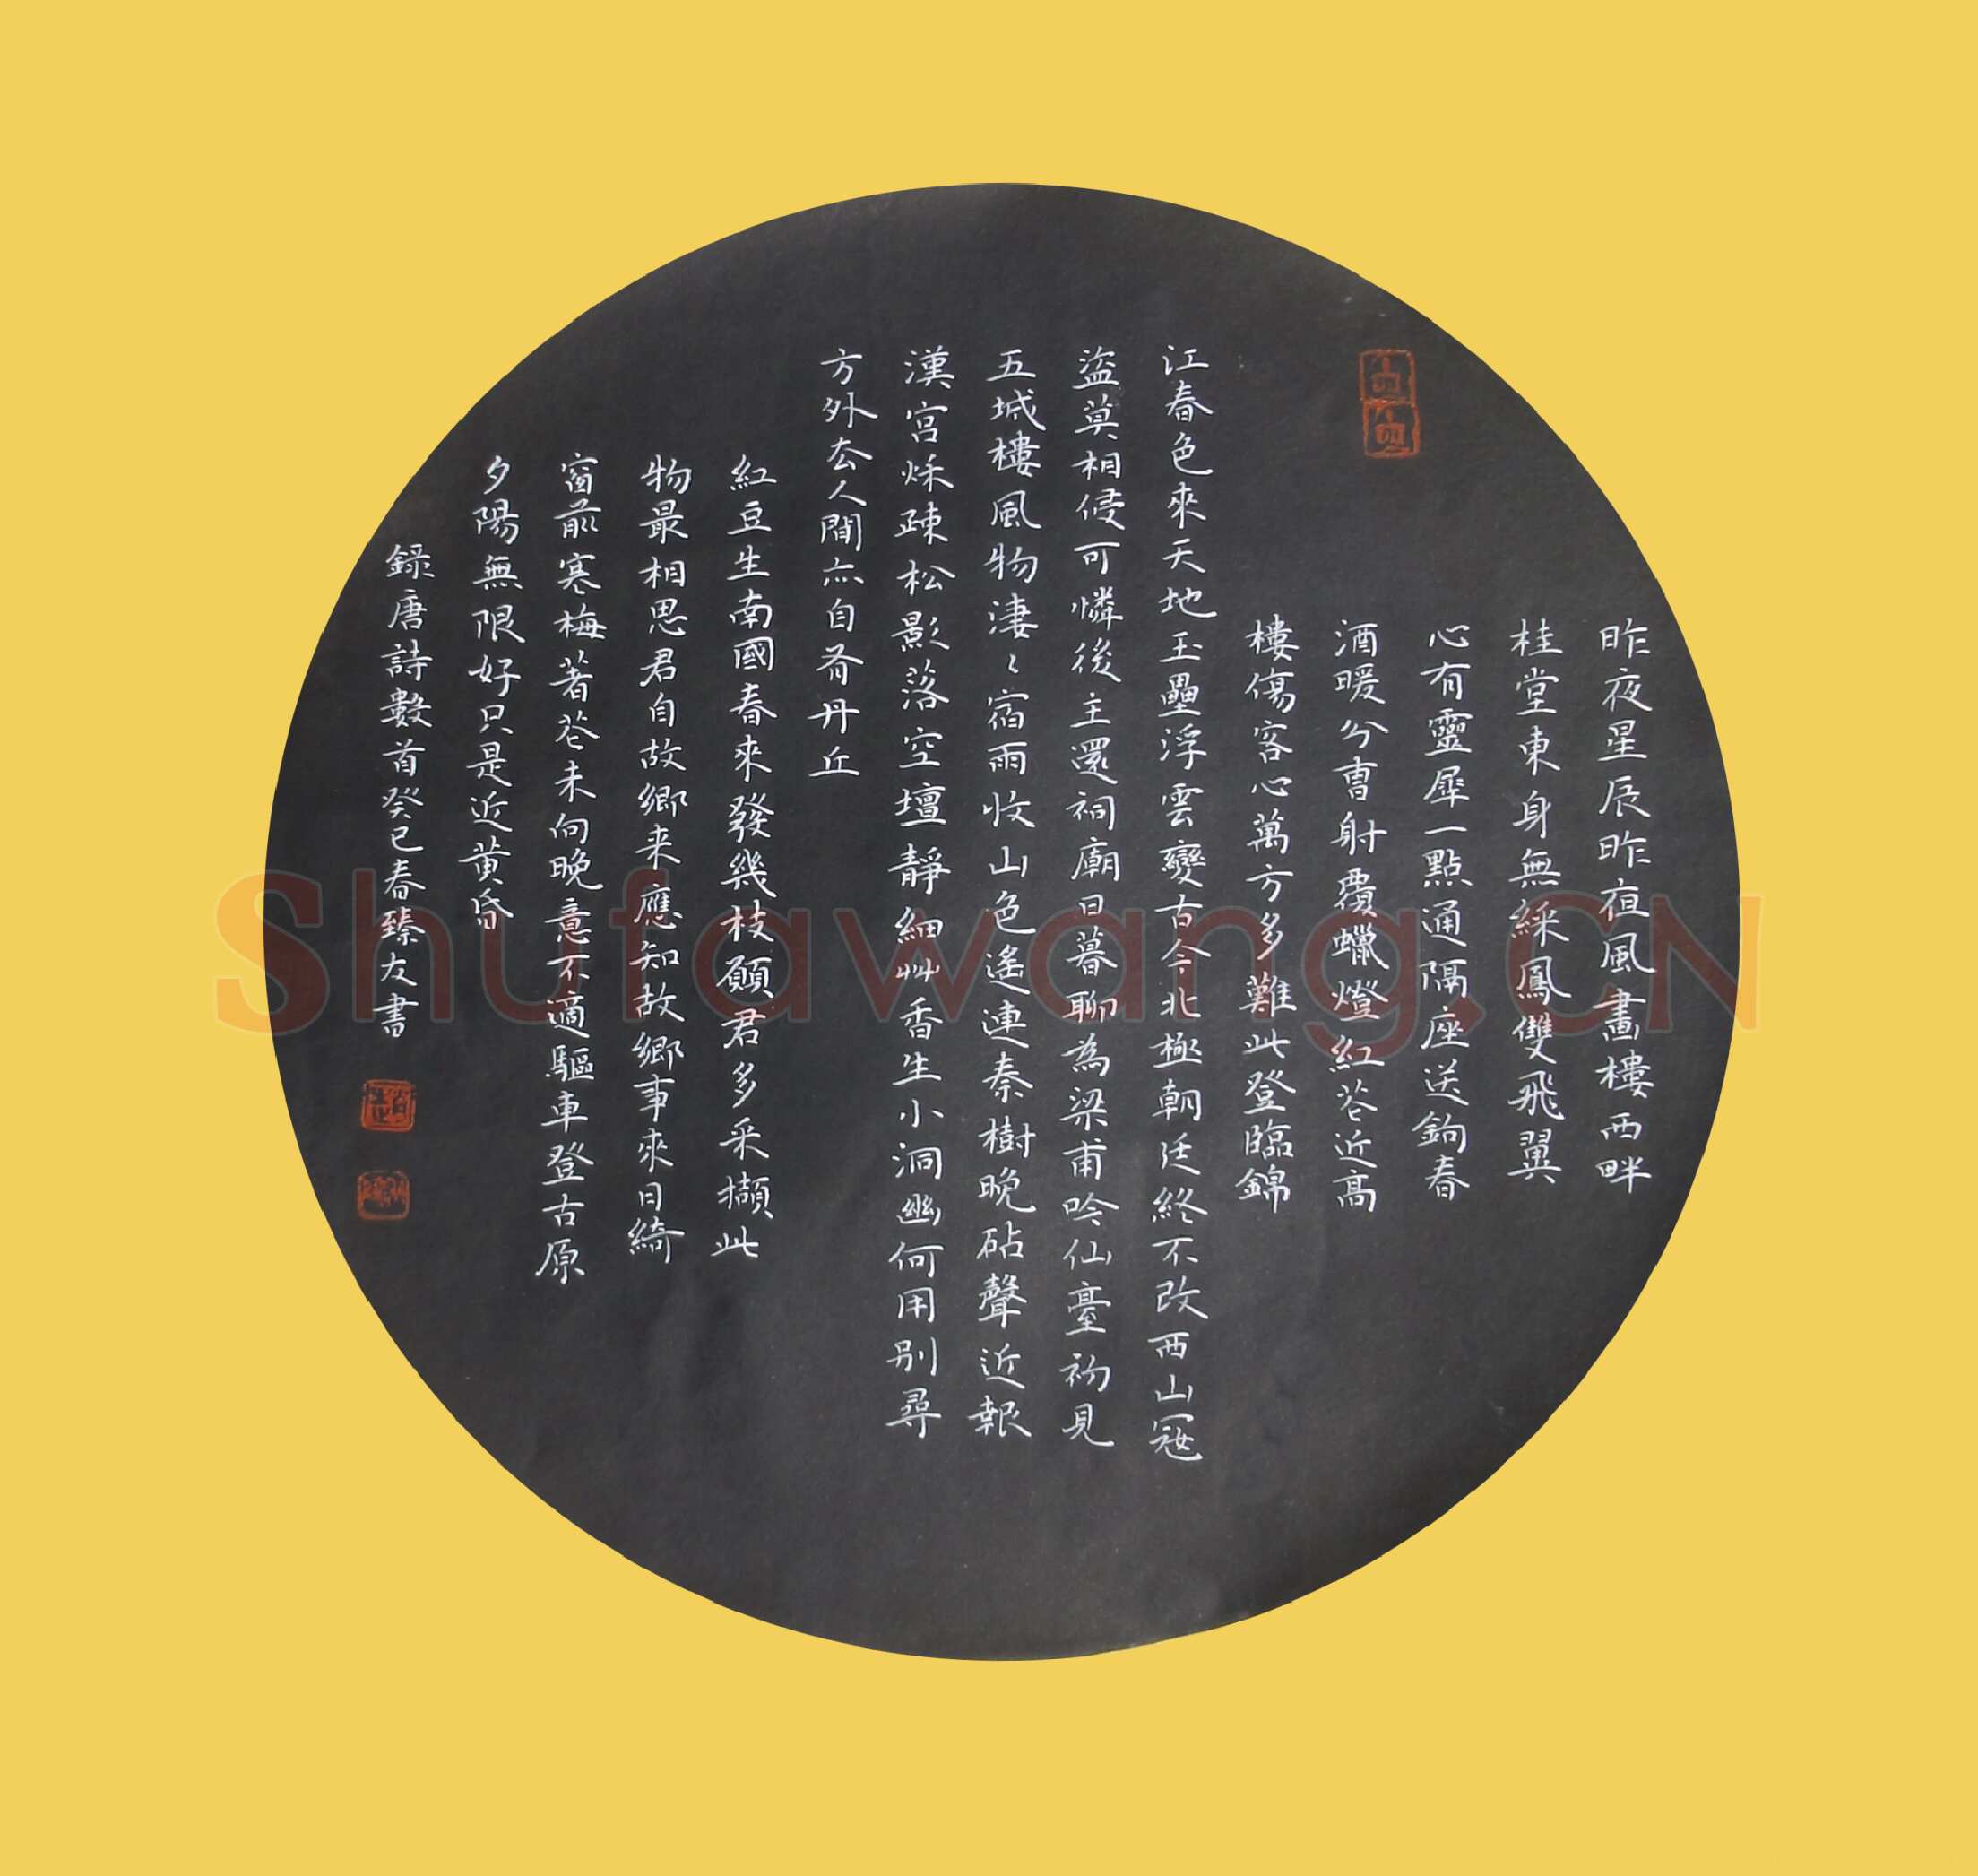 昨夜星辰昨夜風畫樓西畔
桂堂東身無綵鳳雙飛翼
心有靈犀一點通隔座送鉤春
酒暖分曹射覆蠟燈紅花近高
樓傷客心萬方多難此登臨錦
江春色來天地玉壘浮雲變古今北極朝廷終不改西山寇
盜莫相侵可憐後主還祠廟日暮聊為梁甫吟仙臺初見
五城樓風物淒〻宿雨收山色遙連秦樹晚砧聲近報
漢宮秌疎松影落空壇靜細艸香生小洞幽何用別尋
方外去人間亦自有丹丘
紅豆生南國春來發幾枝願君多采擷此
物最相思君自故鄉来應知故鄉事來日綺
窗前寒梅著花未向晚意不適驅車登古原
夕陽無限好只是近黃昏
錄唐詩數首癸巳春臻友書
Shufawang.CN